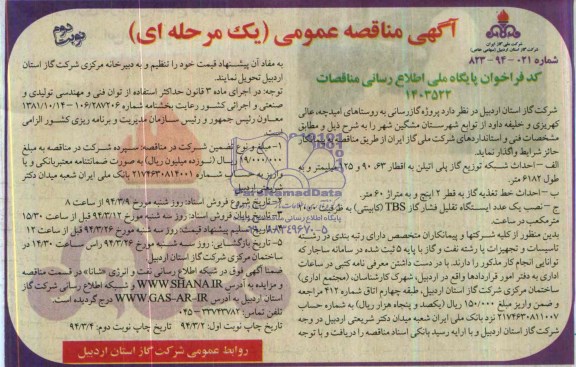 آگهی مناقصه عمومی (یک مرحله ای)
نوبت دوم
شرکت ملی گاز ایران
شرکت گاز استان اردبیل (سهامی خاص)
شماره ۰۲۱-۹۴-۸۲۳
کد فراخوان پایگاه ملی اطلاع رسانی مناقصات
۱۴۰۳۵۲۲
شرکت گاز استان اردبیل در نظر دارد پروژه گازرسانی به روستاهای امیدچه، عالی
کهریزی و خلیفه داود از توابع شهرستان مشگین شهر را به شرح ذیل و مطابق
مشخصات فنی و استانداردهای شرکت ملی گاز ایران از طریق مناقصه به
حائز شرایط واگذار نماید.
الف - احداث شبکه توزیع گاز پلی اتیلن به اقطار ۶۳، ۹۰ و میلیمتر و به
طول ۶۱۸۲ متر.
ب- احداث خط تغذیه گاز به قطر ۲ اینچ و به متراژ ۶۰ متر.
ج- نصب یک عدد ایستگاه تقلیل فشار گاز TBS (کابینتی) به ظرفیت
مترمکعب در ساعت.
بدین منظور از کلیه شرکتها و پیمانکاران متخصص دارای رتبه بندی در رشته
تاسیسات و تجهیزات یا رشته نفت و گاز با پایه ۵ ثبت شده در سامانه ساجار که
توانایی انجام کار مذکور را دارند با در دست داشتن معرفی نامه کتبی در ساعات
اداری به دفتر امور قراردادها واقع در اردبیل، شهرک کارشناسان، (مجتمع اداری)
ساختمان مرکزی شرکت گاز استان اردبیل، طبقه چهارم اتاق شماره ۴۱۲ مراجعه
و ضمن واریز مبلغ ۱۵۰/۰۰۰ ریال (یکصد و پنجاه هزار ریال) به شماره حساب
۲۱۷۴۶۳۰۸۱۱۰۰۷ نزد بانک ملی ایران شعبه میدان دکتر شریعتی اردبیل در وجه
شرکت گاز استان اردبیل و با ارایه رسید بانکی اسناد مناقصه را دریافت و با توجه
به مفاد آن پیشنهاد قیمت خود را تنظیم و به دبیرخانه مرکزی شرکت گاز استان
اردبیل تحویل نمایند.
توجه: در اجرای ماده ۳ قانون حداکثر استفاده از توان فنی و مهندسی تولیدی و
صنعتی و اجرائی کشور رعایت بخشنامه شماره ۱۰۶/۲۸۷۲۰۶ - ۱۳۸۱/۱۰/۱۴
معاون رئیس جمهور و رئیس سازمان مدیریت و برنامه ریزی کشور الزامی
۱- مبلغ و نوع تضمین شرکت در مناقصه: سپرده شرکت در مناقصه به مبلغ
۱۹/۰۰۰/۰۰۰ ریال (نوزده میلیون ریال) به صورت ضمانتنامه معتبر بانکی و یا
واریز به حساب شماره ۲۱۷۴۶۳۰۸۱۴۰۰۱ بانک ملی ایران شعبه میدان دکتر
شریعتی اردبیل
۲- تاریخ شروع فروش اسناد: روز سه شنبه مورخ ۹۴/۳/۹ از ساعت ۸
۳- تاریخ پایان فروش اسناد: روز سه شنبه مورخ ۹۴/۳/۱۲ تا ساعت ۱۵/۳۰
تسلیم پیشنهاد قیمت: روز سه شنبه مورخ ۹۴/۳/۲۶ قبل از ساعت ۱۲
۵- تاریخ بازگشایی: روز سه شنبه مورخ ۹۴/۳/۲۶ راس ساعت ۱۴/۳۰ در
ساختمان مرکزی شرکت گاز استان اردبیل
ضمنا آگهی فوق در شبکه اطلاع رسانی نفت و انرژی «شانا» در قسمت مناقصه
و مزایده به آدرس WWW.SHANA.IR و شبکه اطلاع رسانی شرکت گاز
استان اردبیل به آدرس WWW.GAS-AR-IR درج گردیده است.
تلفن تماس: ۳۳۷۴۳۷۸۲-۰۴۵
تاریخ چاپ نوبت اول: ۹۴/۳/۲ تاریخ چاپ نوبت دوم: ۹۴/۳/۴
روابط عمومی شرکت گاز استان اردبیل
ParsNamadData